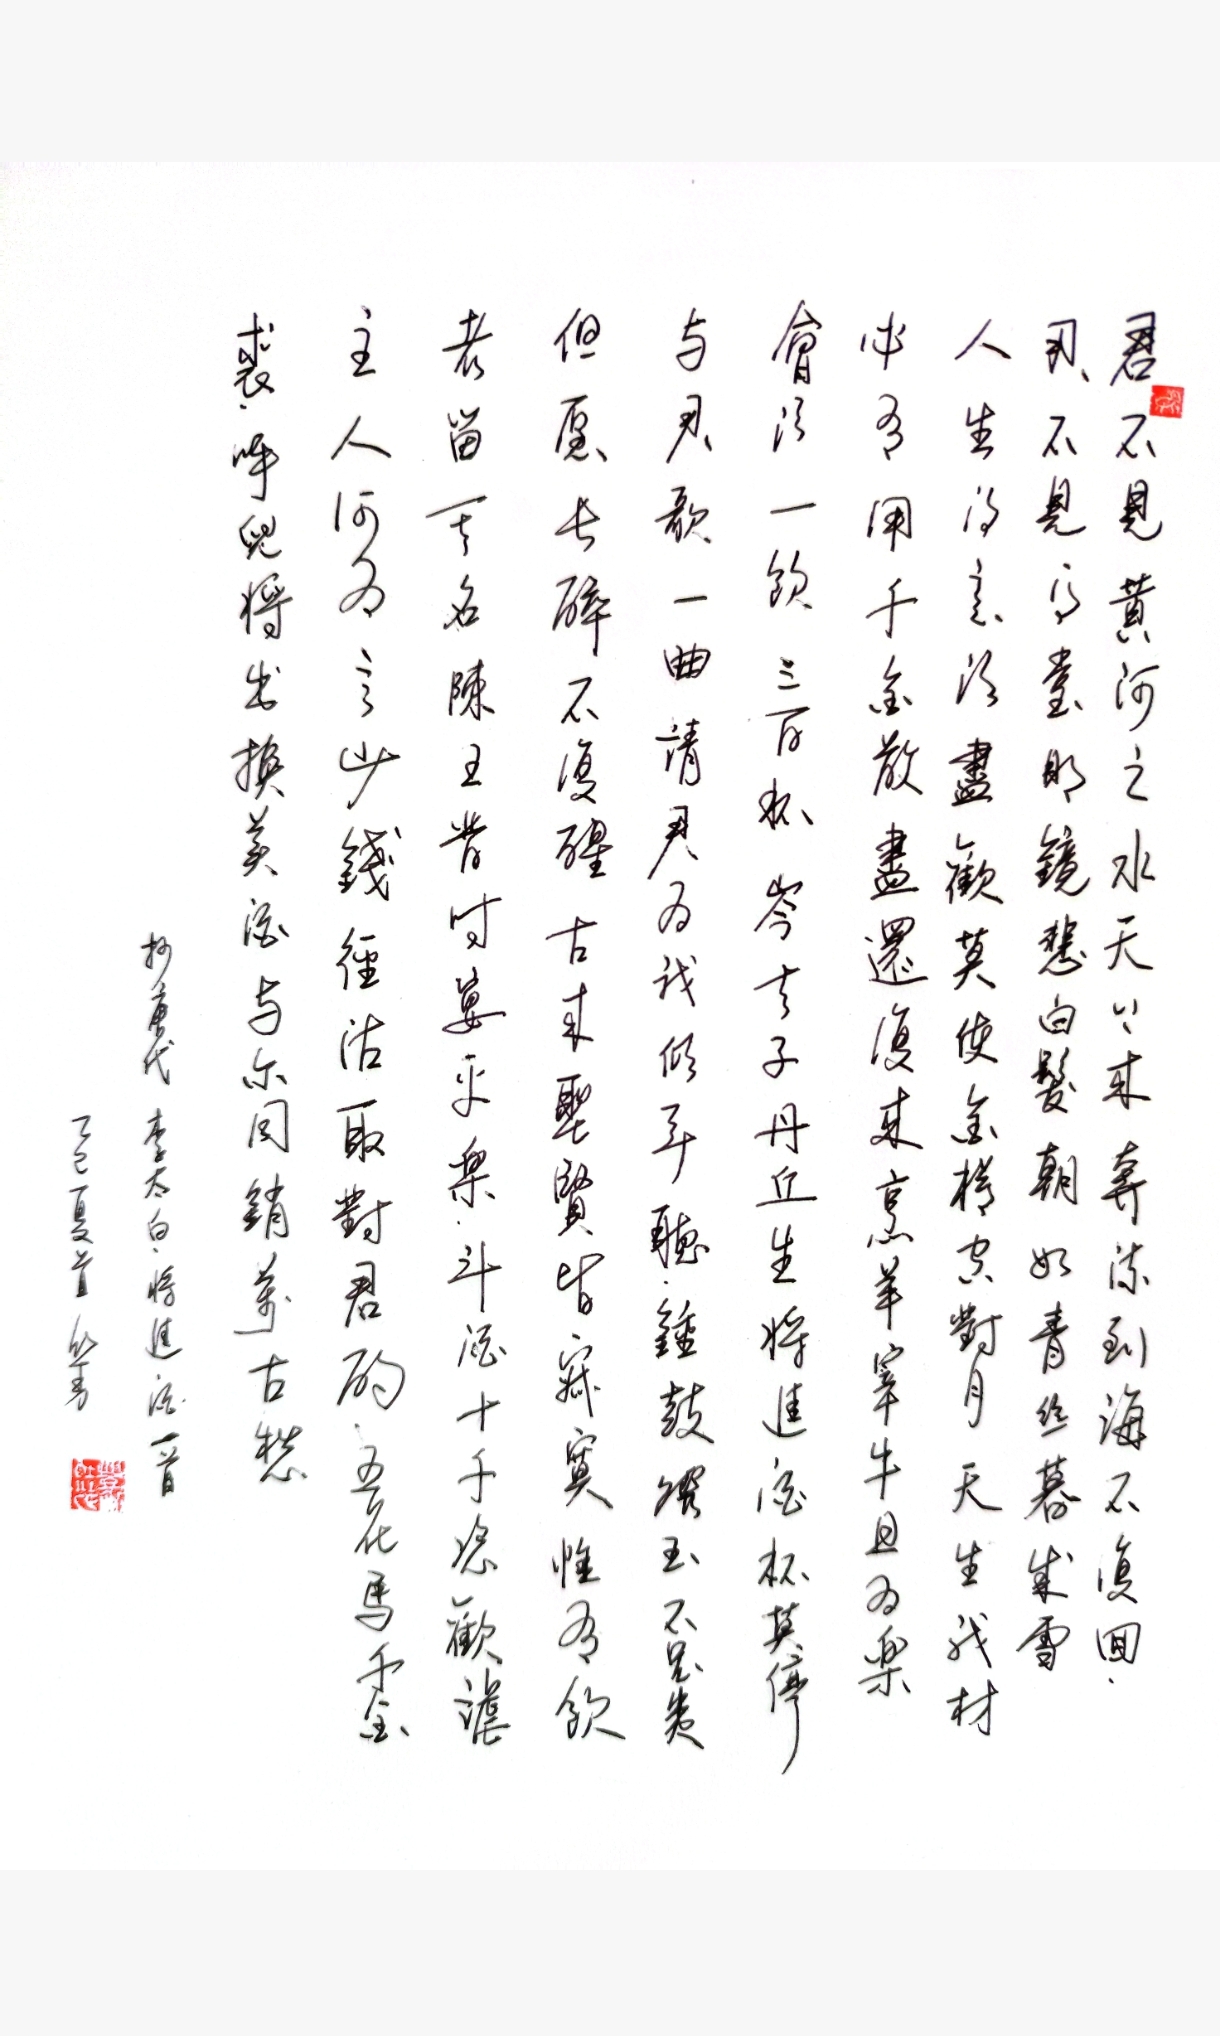 君不見黃河之水天上来奔流到海不復回
君不見高堂明鏡悲白髮朝如青丝暮成雪
人生得意须盡歡莫使金樽空對月天生我材
必有用千金散盡還復来烹羊宰牛且为樂
會须一飲三百杯岑夫子丹丘生将進酒杯莫停
与君歌一曲請君为我傾耳聽鐘鼓饌玉不足贵
但愿长醉不復醒古来聖賢皆寂寞惟有飲
者留其名陳王昔时宴平樂斗酒十千恣歡謔
主人何为言少錢徑沽取對君酌五花馬千金
裘呼兒将出換美酒与尔同銷萬古愁
抄唐代李太白将進酒一首
乙巳夏首